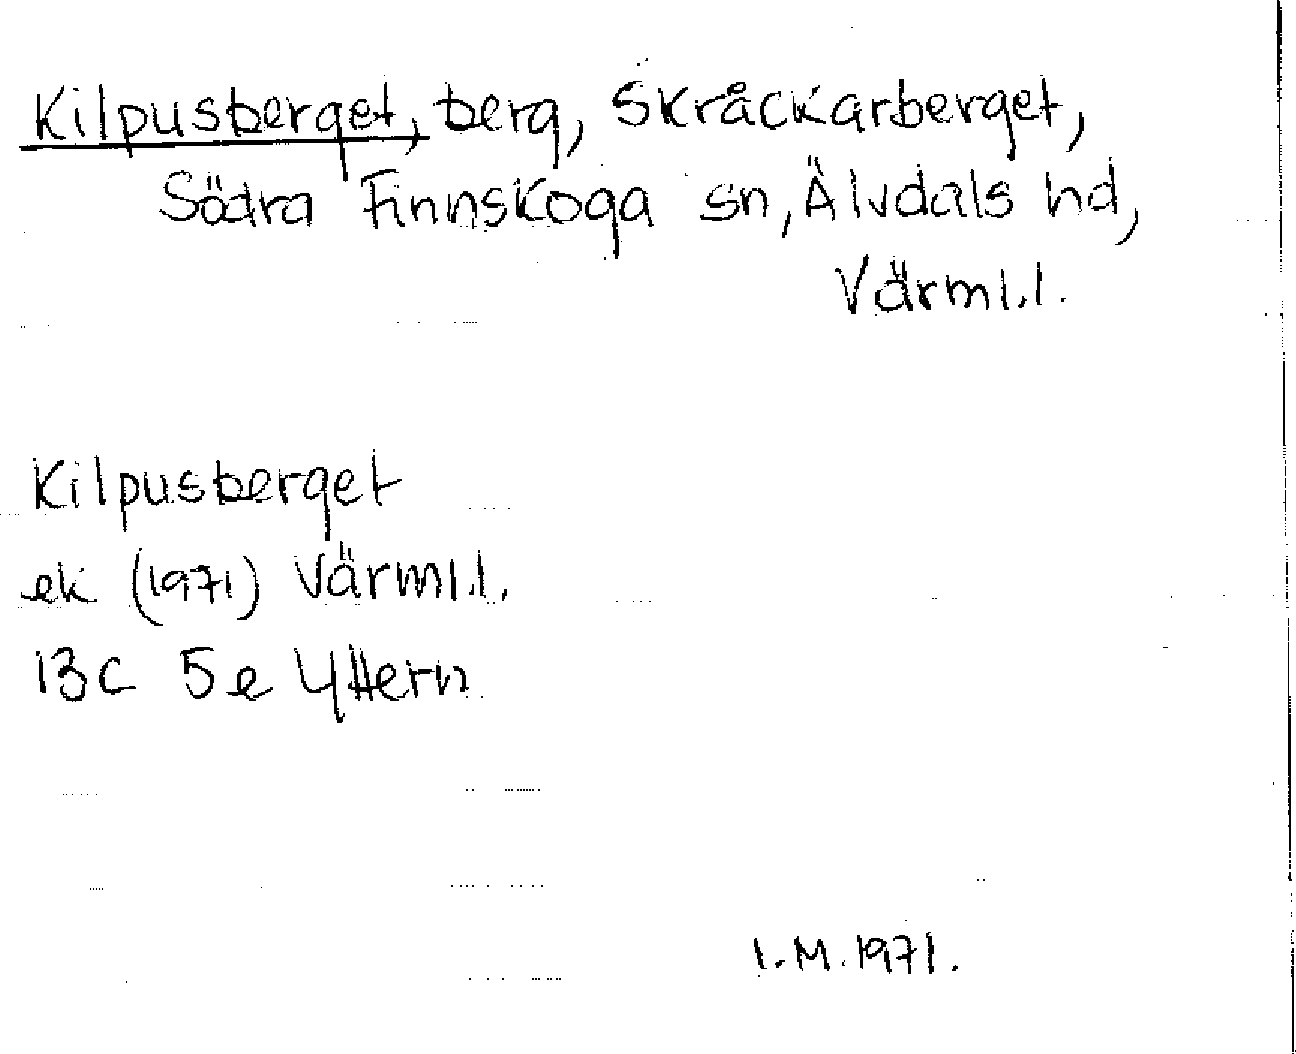 Kilpusberget, berg, Skråckarberget,
Södra Finnskoga sn, Älvdals hd,
Värml.l.
Kilpusberget
ek (1971) Värml.l.
13C 5e Yttern
I.M. 1971.